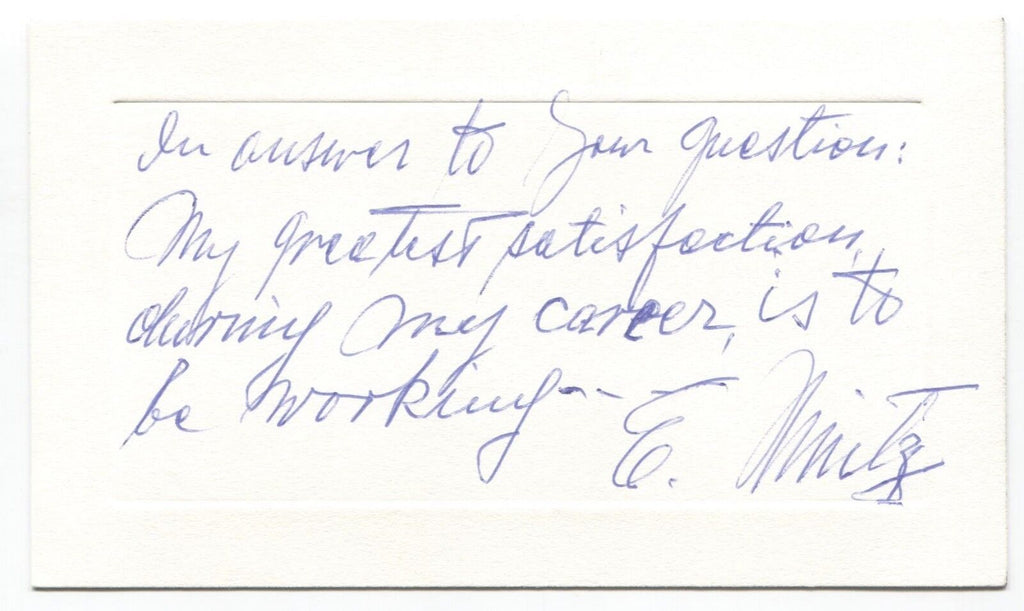 In answer to your question:
My greatest satisfaction,
during my career, is to
be working---
E. Mintz